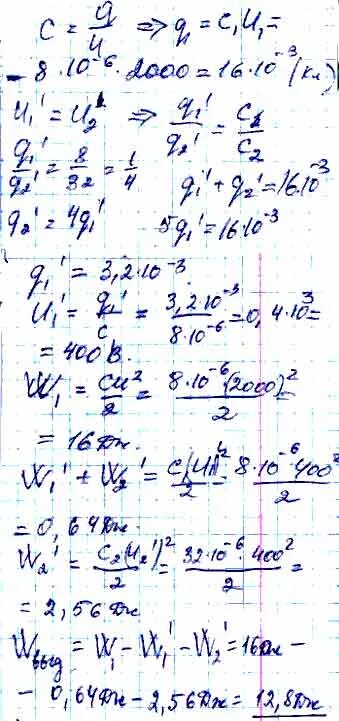 C = q/U => q = C₁U₁ =
- 8·10⁻⁶·2000 = 16·10⁻³ (Кл)
U₁' = U₂' => q₁'/q₂' = C₁/C₂
q₁'/q₂' = 8/32 = 1/4 q₁' + q₂' = 16·10⁻³
q₂' = 4q₁' 5q₁' = 16·10⁻³
q₁' = 3,2·10⁻³
U₁' = q₁'/C = 3,2·10⁻³/8·10⁻⁶ = 0,4·10³ =
= 400 В.
W₁ = CU²/2 = 8·10⁻⁶(2000)²/2 =
= 16 Дж.
W₁' + W₂' = C(U₁')²/2 = 8·10⁻⁶·400²/2
= 0,64 Дж
W₂' = C₂(U₂')²/2 = 32·10⁻⁶·400²/2 =
= 2,56 Дж
Wвыд = W₁ - W₁' - W₂' = 16 Дж -
- 0,64 Дж - 2,56 Дж = 12,8 Дж